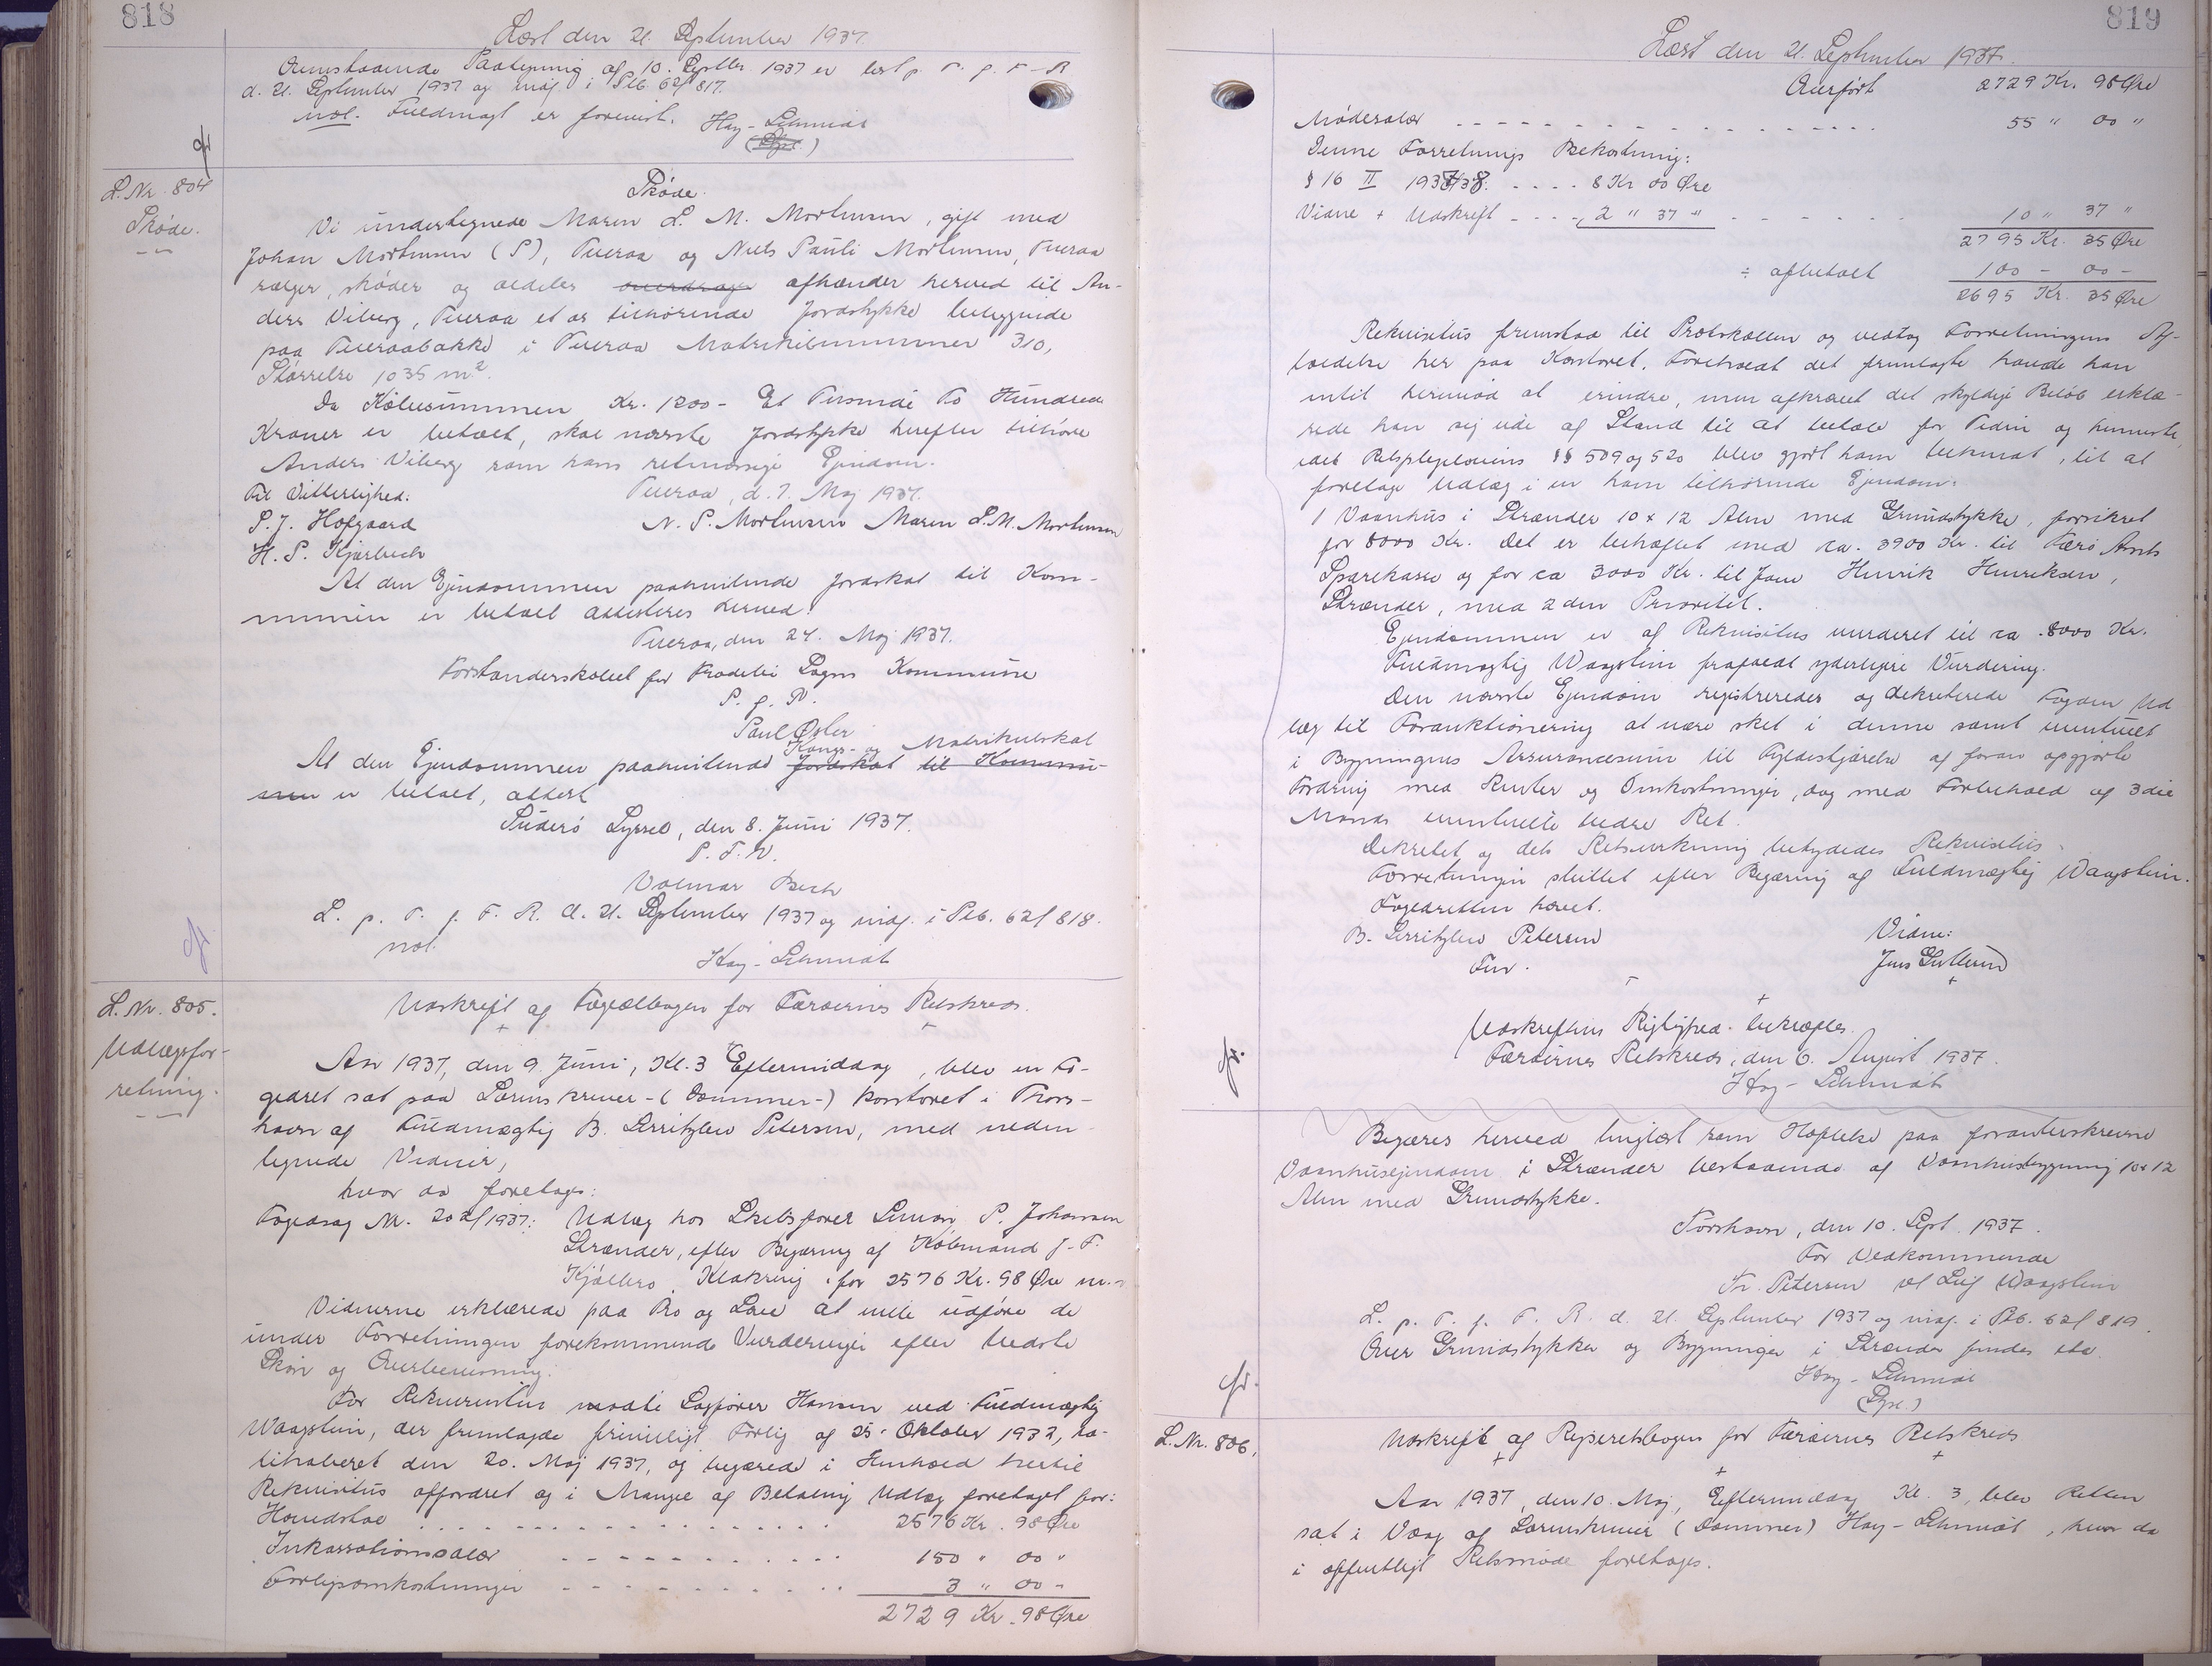 818
Læst den 21. September 1937.
Ovenstaaende Paategning af 10. Septbr. 1937 er læst p. T. f. F-R
d. 21. September 1937 og indf. i Ptb. 62/817.
not. Fuldmagt er forevist. Hay-Schmidt
L. Nr. 804
Skøde.
Skøde.
Vi undertegnede Maren L. M. Mortensen, gift med
Johan Mortensen (S), Tveraa og Niels Pauli Mortensen, Tveraa
sælger, skøder og aldeles overdrager afhænder herved til An-
ders Viberg, Tveraa et os tilhørende Jordstykke beliggende
paa Tveraabakke i Tveraa Matrikilnummer 310,
Størrelse 1035 m².
Da Købesummen Kr. 1200- Et Tusinde To Hundrede
Kroner er betalt, skal nævnte Jordstykke herefter tilhøre
Anders Viberg som hans retmæssige Ejendom.
Til Vitterlighed: Tveraa, d. 7. Maj 1937.
P. J. Hofgaard N. P. Mortensen Maren L.M. Mortensen
H. P. Kjærbech
At den Ejendommen paahvilende Jordskat til Kom-
munen er betalt attesteres herved.
Tveraa, den 24. Maj 1937.
Forstanderskabet for Frodebø Sogns Kommune
P. f. V.
Paul Øster
Kongs- og Matrikulskat
At den Ejendommen paahvilende Jordskat til Kommu-
nen er betalt, attest
Suderø Syssel, den 8. Juni 1937.
P. F. V.
Volmar Bech
L. p. T. f. F. R. d. 21. September 1937 og indf. i Ptb. 62/818.
not.
Hay-Schmidt
L. Nr. 805.
Udlægsfor-
retning.
Udskrift af Fogedbogen for Færøernes Retskreds.
Aar 1937, den 9. Juni, Kl. 3 Eftermiddag, blev en Fo-
gedret sat paa Sorenskriver-(Dommer-) kontoret i Thors-
havn af Fuldmægtig B. Serritzlew Petersen, med neden-
tegnede Vidner,
hvor da foretoges:
Fogedsag Nr. 202/1937: Udlæg hos Skibsfører Simon P. Johansen
Strænder, efter Begæring af Købmand J. F.
Kjølbro, Klaksvig for 2576 Kr. 98 Øre m.
Vidnerne erklærede paa Tro og Love at ville udføre de
under Forretningen forekommende Vurderinger efter bedste
Skøn og Overbevisning.
For Rekvirentus mødte Sagfører Hansen ved Fuldmægtig
Waagstein, der fremlagde frivilligt Forlig af 25. Oktober 1932,
den 20. Maj 1937, og begærede i Henhold hertil
Rekvisitus affordret og i Mangel af Betaling Udlæg foretaget for:
Hovedstol . . . . . . 2576 Kr. 98 Øre
Inkassationssalær - - - - - 150 " 00 "
Forligsomkostninger - - - - - 3 " 00 -
2729 Kr. 98 Øre
819
Læst den 21. September 1937.
Overført 2729 Kr. 98 Øre
Mødesalær - - - - - 55 " 00 "
Denne Forretnings Bekostning:
§ 16 II 1937/38. . . . . 8 Kr 00 Øre
Vidne + Udskrift - - - - 2 " 37 " - - - - 10 " 37 "
2795 Kr. 35 Øre
÷ afbetalt 100 - 00 -
2695 Kr. 35 Øre
Rekvisitus fremstod til Protokollen og vedtog Forretningens Af-
holdelse her paa Kontoret. Foreholdt det fremlagte havde han
intet herimod at erindre, men afkrævet det skyldige Beløb erklæ-
rede han sig ude af Stand til at betale for Tiden og henviste,
idet Retsplejelovens §§ 509 og 520 blev gjort ham bekendt, til at
foretage Udlæg i en ham tilhørende Ejendom:
1 Vaanhus i Strænder 10 x 12 Alen med Grundstykke, forsikret
for 8000 Kr. Det er behæftet med ca. 3900 Kr. til Færø Amts
Sparekasse og for ca 3000 Kr. til Jens Henrik Henriksen,
Strænder, med 2den Prioritet.
Ejendommen er af Rekvisitus vurderet til ca. 8000 Kr.
Fuldmægtig Waagstein frafaldt yderligere Vurdering.
Den nævnte Ejendom registreredes og dekreterede Fogden Ud
læg til Foranktionering at være sket i denne samt eventuelt
i Bygningens Assurancesum til Fyldestgørelse af foran opgjorte
Fordring med Renter og Omkostninger, dog med Forbehold af 3die
Mands eventuelle bedre Ret.
Dekretet og dets Retsvirkning betydedes Rekvisitus.
Forretningen sluttet efter Begæring af Fuldmægtig Waagstein.
Fogedretten hævet.
B. Serritzlew Petersen Vidne:
Fm. Jens Guttesen
Udskriftens Rigtighed bekræftes.
Færøernes Retskreds, den 6. August 1937.
Hay-Schmidt
Begæres herved tinglæst som Hæftelse paa foranførskrevne
Vaanhusejendom i Strænder bestaaende af Vaanhusbygning 10x12
Alen med Grundstykke.
Tórshavn, den 10. Sept. 1937.
For Vedkommende
Fr. Petersen v/ Leif Waagstein
L. p. T. f. F. R. d. 21. September 1937 og indf. i Ptb. 62/819.
Over Grundstykker og Bygninger i Strænder findes
Hay-Schmidt
L. Nr. 806,
Udskrift af Rejseretsbogen for Færøernes Retskreds
Aar 1937, den 10. Maj, Eftermiddag Kl. 3, blev Retten
sat i Vaag af Sorenskriver (Dommer) Hay-Schmidt, hvor da
i offentligt Retsmøde foretoges.